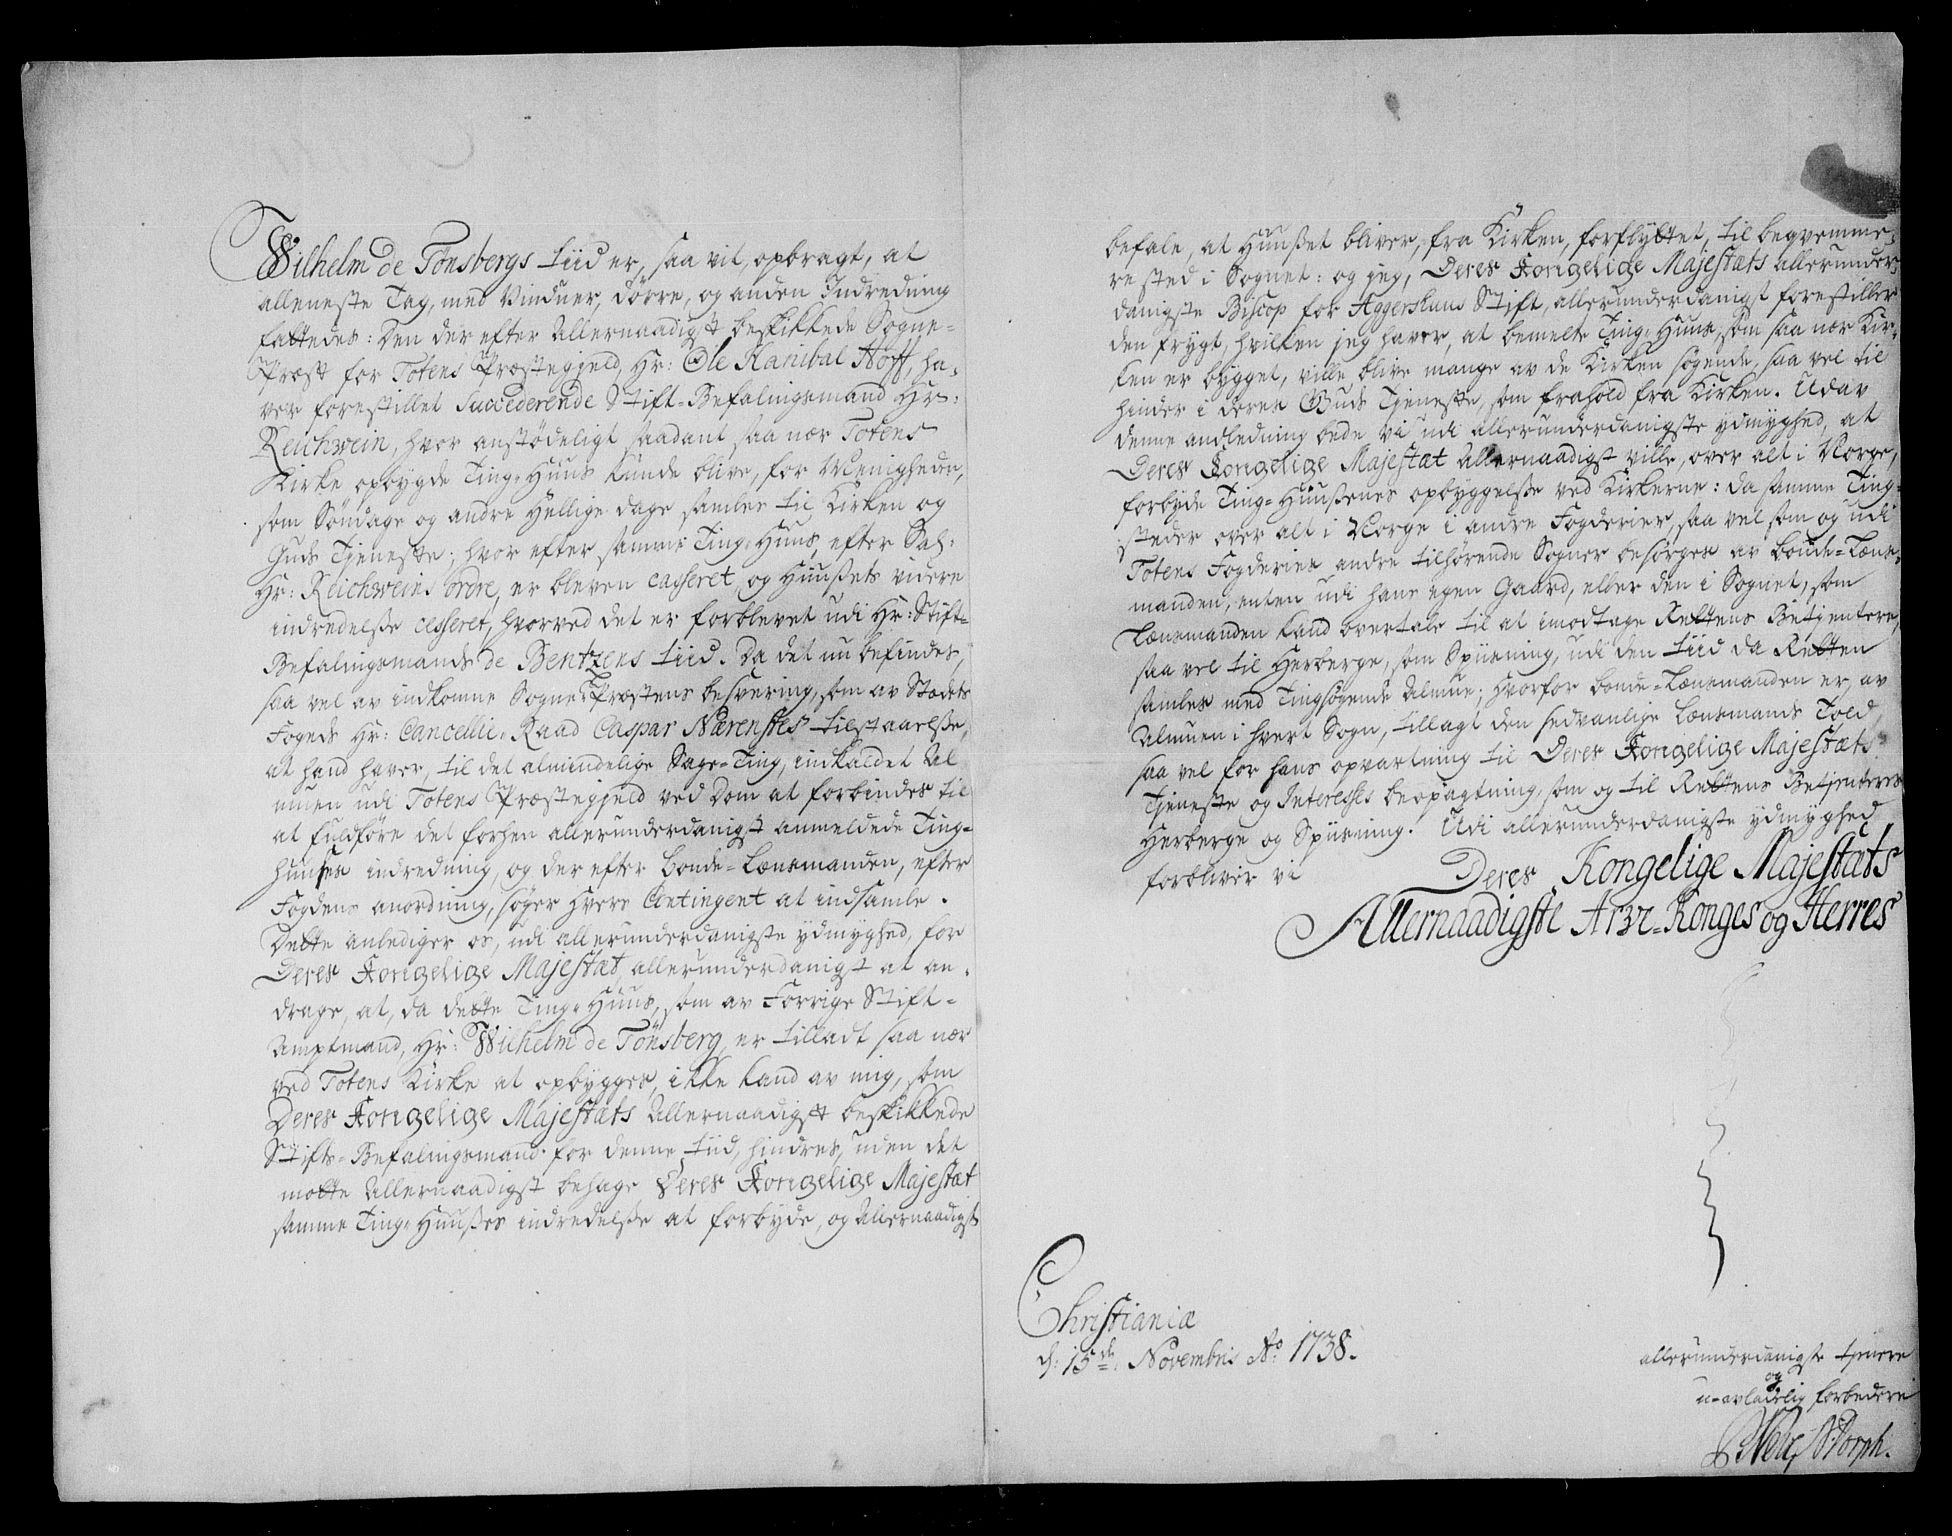 Wilhelm de Tönsbergs tiid er, saa vit, opbragt, at
alleneste Tag, med Vinduer, döre, og anden Indredning
fattedes: Den der efter Allernaadigst beskikkede Sogne-
Præst for Totens Præstegjeld, Hr: Ole Hanibal Hoff, ha-
ver forestillet Succederende Stift-Befalingsmand Hr:
Reichwein, hvor anstödeligt saadant saa nær Totens
Kirke opbygde Ting-Huus kunde blive, for Menigheden,
som Söndage og andre Hellige dage samles til Kirken og
Guds Tjeneste; hvor efter samme Ting-Huus, efter Sal:
Hr: Reichweins ordre, er bleven casseret, og Huusets videre
indredelsse cesseret, hvorved det er forblevet udi Hr: Stift-
Befalingsmands de Bentzens tiid. Da det nu befindes,
saa vel av indkomne Sogne Præstens besvering, som av Stædets
Fogeds Hr: Cancellie-Raad Caspar Närensses tilstaaelsse,
at hand haver, til det almindelige Sage-Ting, indkaldet Al
muen udi Totens Præstegjeld ved Dom at forbindes til
at fuldföre det forhen allerunderdanigst anmeldede Ting-
huuses indredning, og der efter bonde-Lænsmanden, efter
Fogdens anordning, söger hvers Contingent at indsamle.
Dette anlediger os, udi allerunderdanigste ydmyghed, for
Deres Kongelige Majestæt allerunderdanigst at an-
drage, at, da dette Ting-Huus, som av Forrige Stift-
Amptmand, Hr: Wilhelm de Tönsberg, er tilladt saa nær
ved Totens Kirke at opbygges, ikke kand av mig, som
Deres Kongelige Majestæts Allernaadigst beskikkede
Stifts-Befalingsmand for denne tiid, hindres, uden det
motte Allernaadigst behage Deres Kongelige Majestæt
samme Ting-Huuses indredelsse at forbyde, og Allernaadigst
befale, at Huuset bliver, fra Kirken, forflyttet, til beqvemme-
re sted i Sognet: og jeg, Deres Kongelige Majestæts allerunder-
danigste Biscop for Aggershuus Stift, allerunderdanigst forestiller
den frygt, hvilken jeg haver, at bemelte Ting-Huus, som saa nær Kir-
ken er bygget, ville blive mange av de Kirken sögende, saa vel til
hinder i deres Guds Tjeneste, som frahold fra Kirken. Udav
denne andledning bede vi udi allerunderdanigste ydmyghed, at
Deres Kongelige Majestæt Allernaadigst ville, over alt i Norge,
forbyde Ting-Huusenes opbyggelsse ved Kirkerne: da samme Ting-
steder over alt i Norge i andre Fogderier, saa vel som og udi
Totens Fogderies andre tilhörende Sogner besörges av bonde-Læns-
manden, enten udi hans egen Gaard, eller den i Sognet, som
Lænsmanden kand overtale til at imodtage Rettens Betjentere,
saa vel til Herberge, som Spiisning, udi den tiid da Retten
samles med Tingsögende Almue; hvorfor bonde-Lænsmanden er, av
Almuen i hvert Sogn, tillagt den sedvanlige Lænsmands Told,
saa vel for hans opvartning til Deres Kongelige Majestæts
Tjeneste og Interesses beopagtning, som og til Rettens Betjenteres
Herberge og Spiisning. Udi allerunderdanigste ydmyghed
forbliver vi
Deres Kongelige Majestæts
Allernaadigste Arve-Konges og Herres
Christianiæ
d: 15de: Novembris Ao: 1738.
allerunderdanigste tjenere
og
u-avladelig forbedere